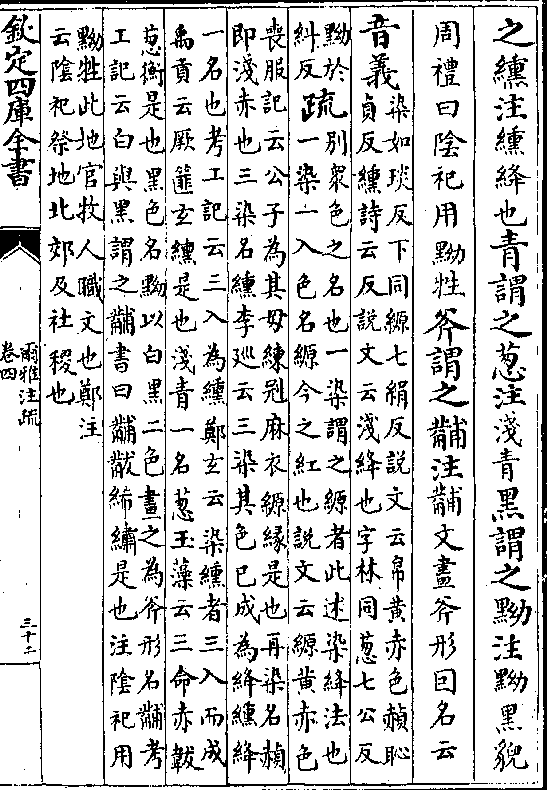 之纁注纁絳也青謂之葱注淺青黑謂之黝注黝黑貌
周禮曰陰祀用黝牲斧謂之黼注黼文畫斧形因名云
音義染如琰反下同縓七絹反説文云帛黄赤色赬恥
貞反纁詩云反説文云淺絳也字林同葱七公反
黝於
糾反疏别衆色之名也一染謂之縓者此述染絳法也
一染一入色名縓今之紅也説文云縓黄赤色
喪服記云公子為其母練冠麻衣縓緣是也再染名赬
即淺赤也三染名纁李廵云三染其色已成為絳纁絳
一名也考工記云三入為纁鄭玄云染纁者三入而成
禹貢云厥篚玄纁是也淺青一名葱玉藻云三命赤韍
葱衡是也黑色名黝以白黑二色畫之為斧形名黼考
工記云白與黑謂之黼書曰黼黻絺繡是也注陰祀用
黝牲此地官牧人職文也鄭注
云陰祀祭地北郊及社稷也
欽定四庫全書
爾雅注疏
卷四
三十二